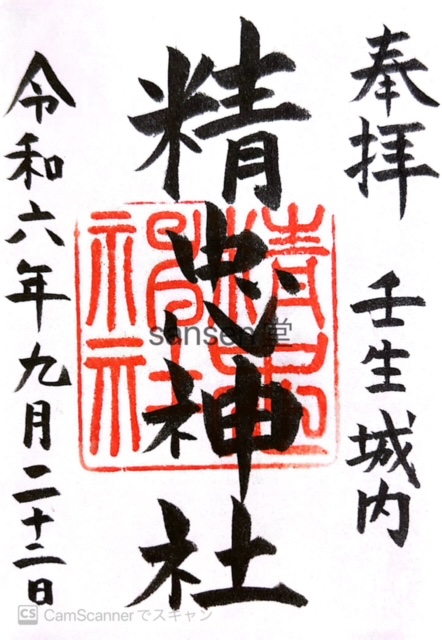 奉拝 壬生城内
精忠神社
令和六年九月二十二日
sansen堂
CS CamScannerでスキャン